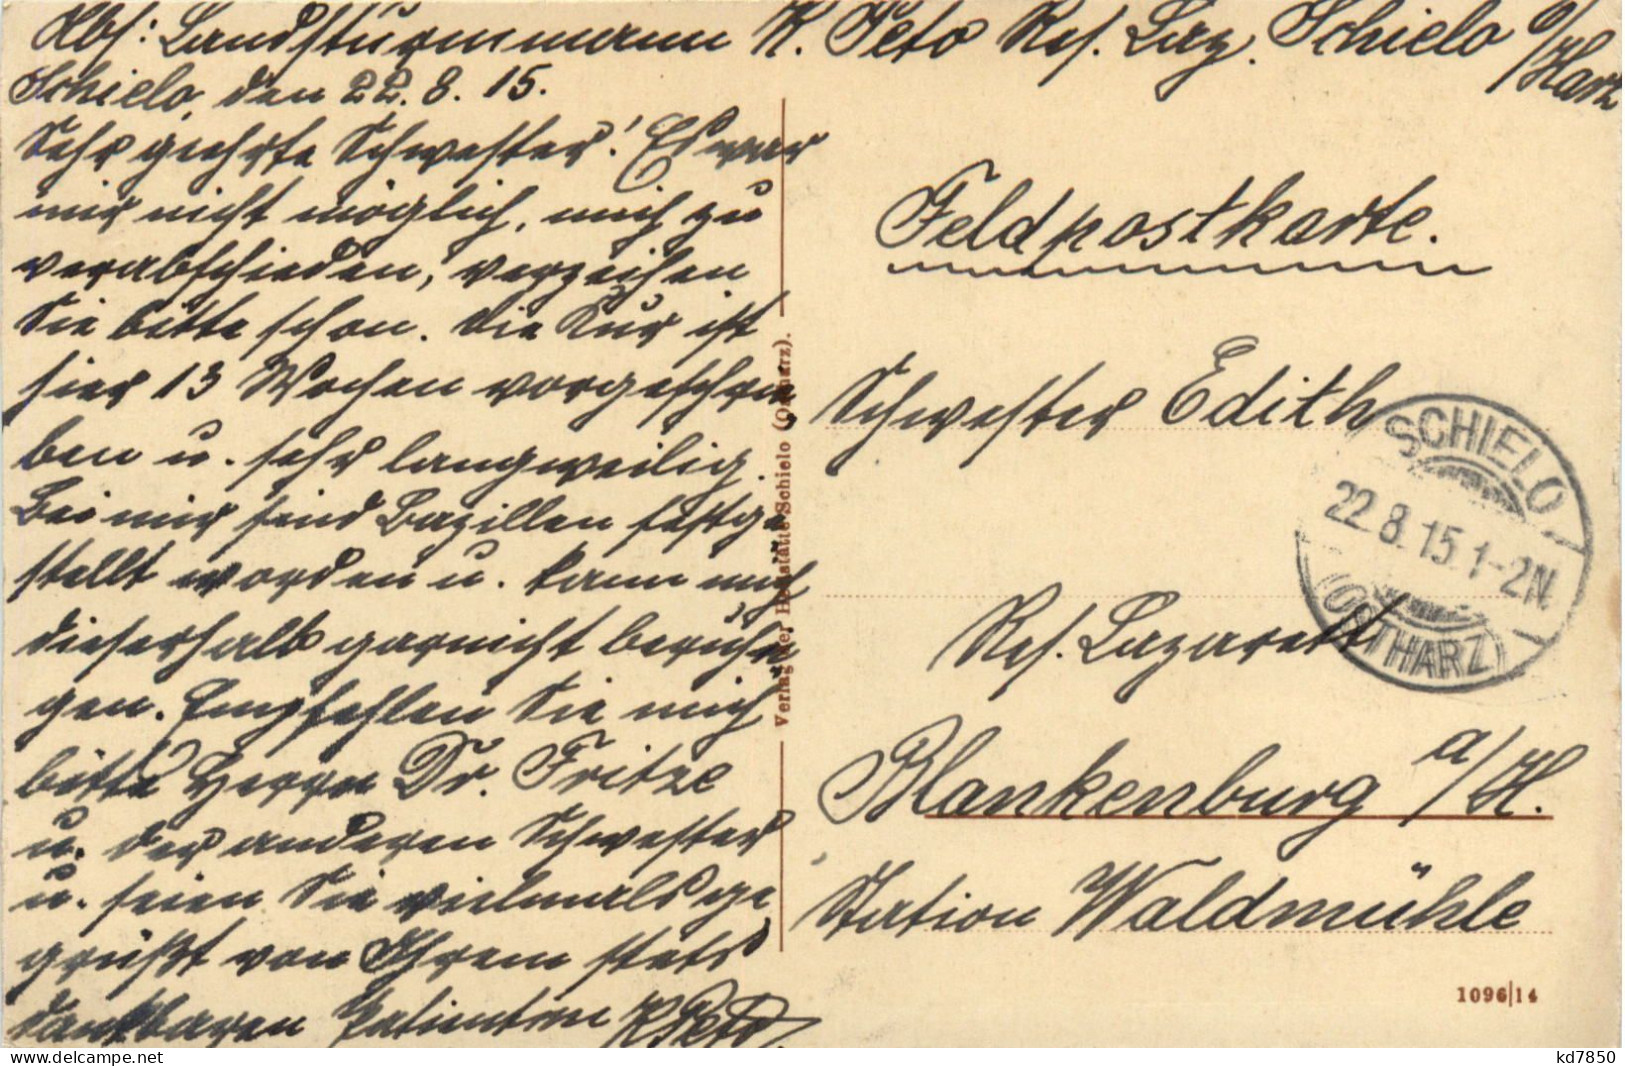 Abs: Landsturmmann K. Peto Res. Laz. Schielo o/Harz
Schielo, den 22. 8. 15.
Sehr geehrte Schwester! Es war
mir nicht möglich, mich zu
verabschieden, verzeihen
Sie bitte schon. Die Kur ist
hier 13 Wochen vorgeschrie
ben u. sehr langweilig.
Bei mir sind Bazillen festge
stellt worden u. kann mich
dieserhalb garnicht beruhi
gen. Empfehlen Sie mich
bitte Herrn Dr. Fritze
u. der anderen Schwester
u. seien Sie vielmals ge
grüßt von Ihrem stets
dankbaren Patienten K Peto
Verlag der Heilstätte Schielo (Ostharz).
Feldpostkarte.
Schwester Edith
Res. Lazarett
Blankenburg a/H.
Station Waldmühle
SCHIELO
22.8.15.1-2N
(OSTHARZ)
1096|14
kd7850